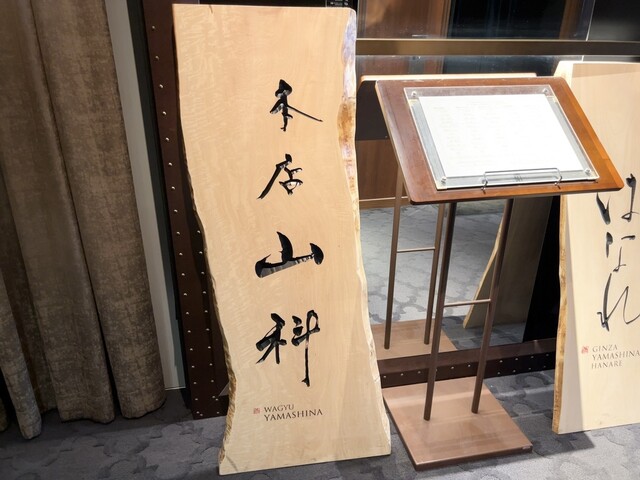 本店山科
WAGYU
YAMASHINA
はなれ
GINZA
YAMASHINA
HANARE